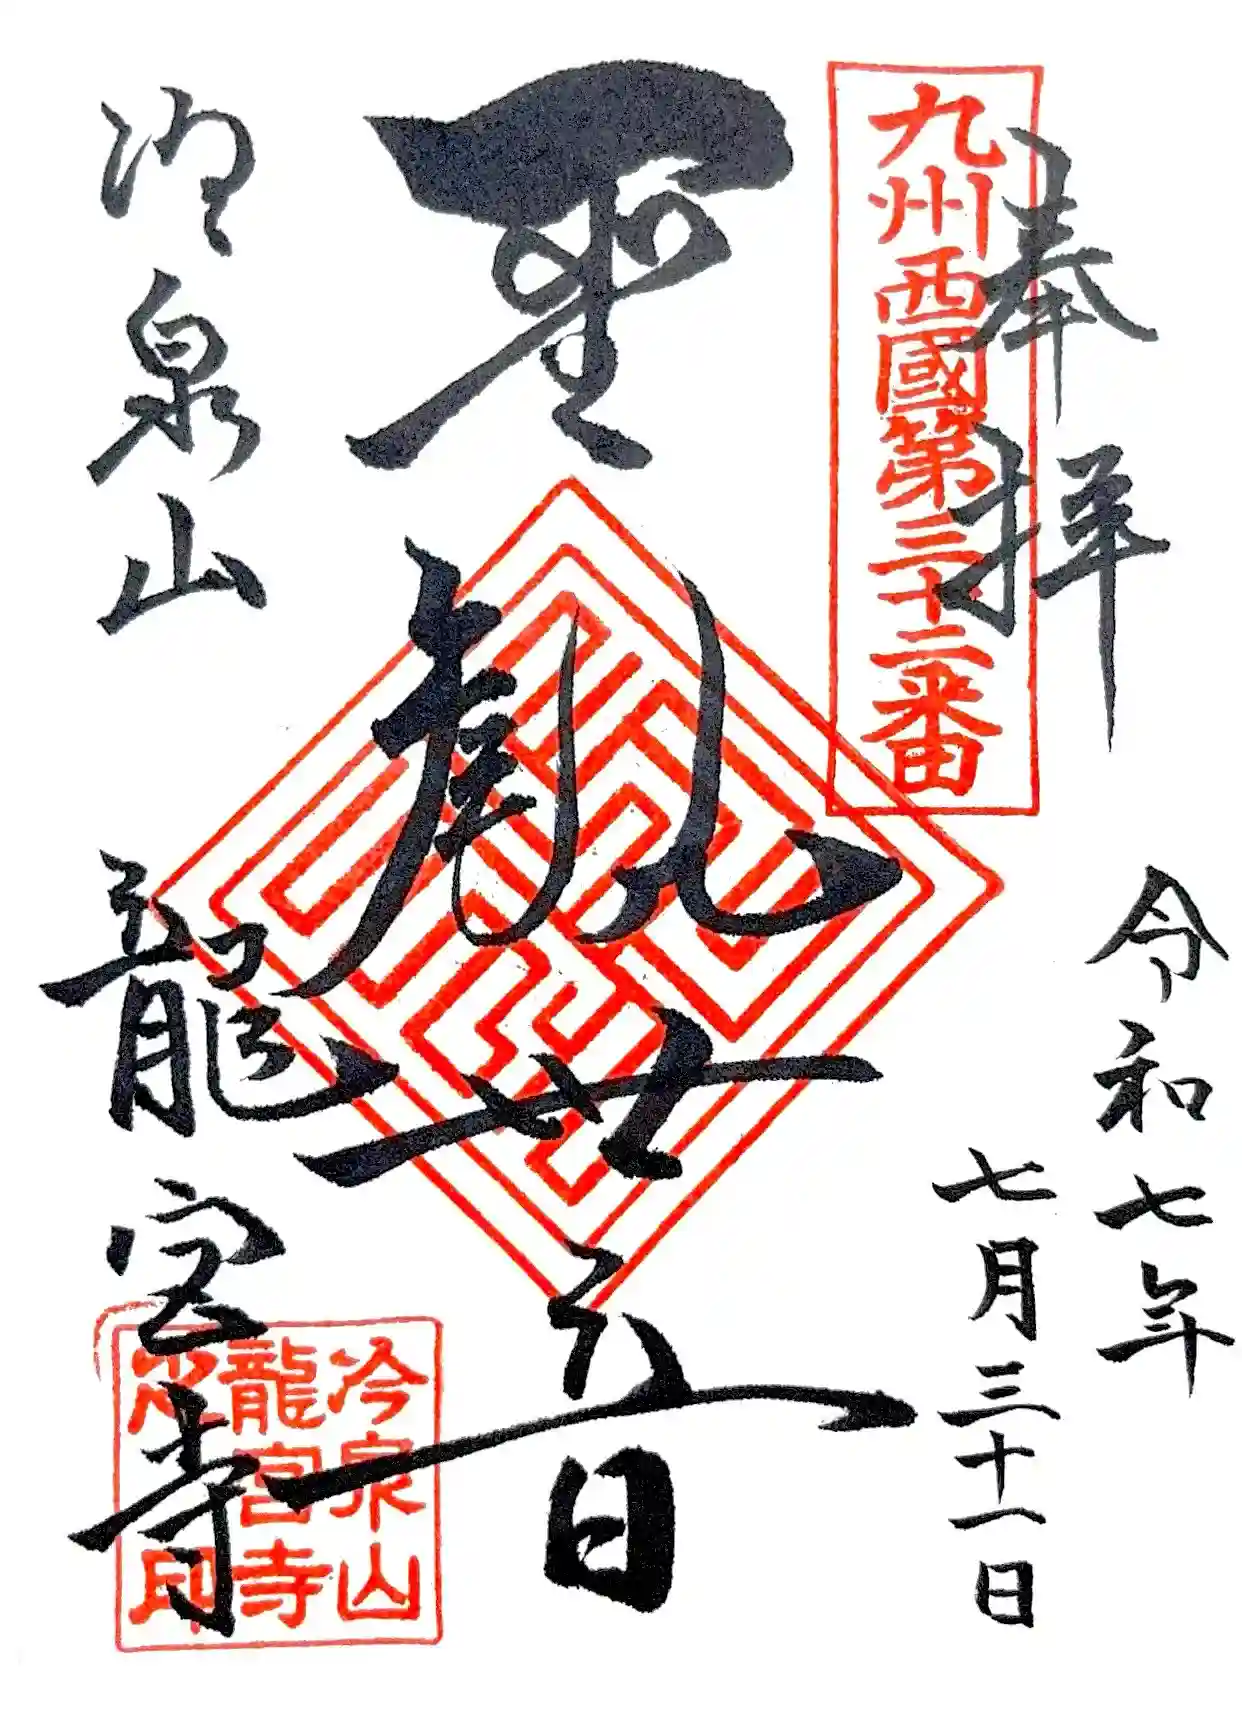 奉拝
令和七年
七月三十一日
九州西國第三十二番
聖観世音
冷泉山
龍宮寺
冷泉山
龍宮寺
印